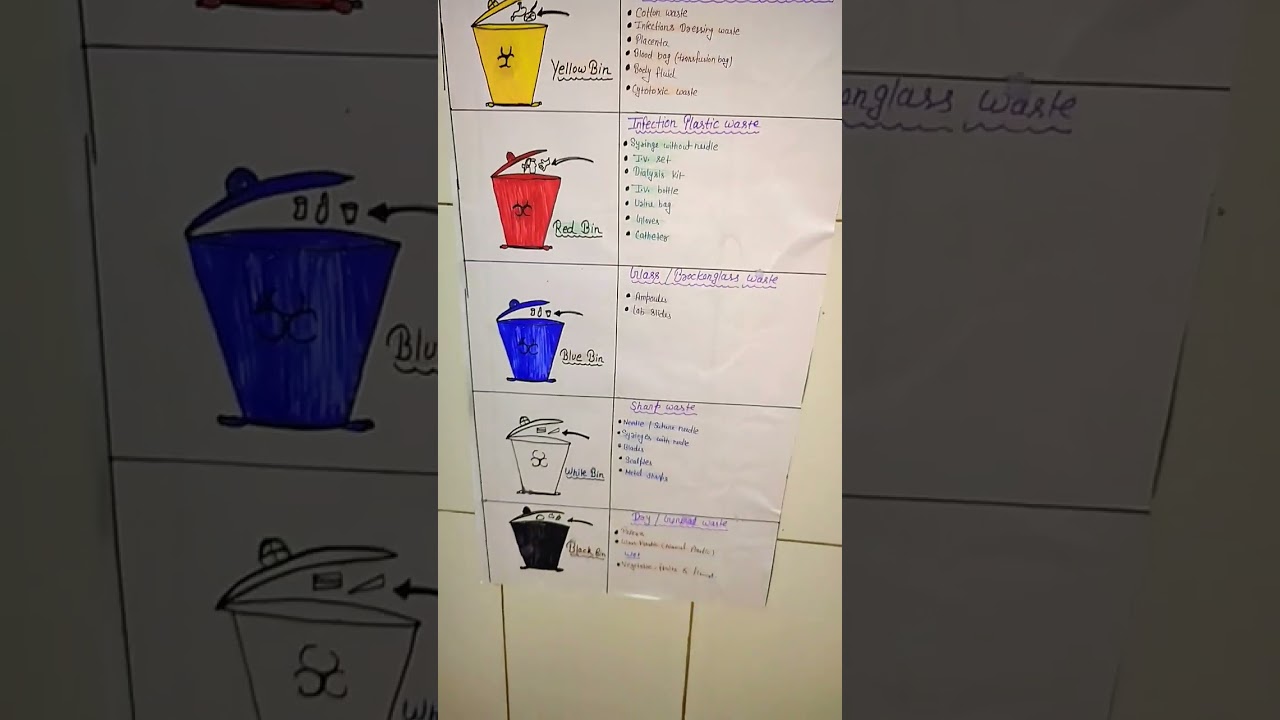 Cotton waste
Infections Dressing waste
Placenta
Blood bag (transfusion bag)
Body fluid
Cytotoxic waste
Yellow Bin
Infection Plastic waste
Syringe without needle
I.v. set
Dialysis kit
I.v. bottle
Urine bag
Gloves
Catheter
Red Bin
Glass / Brockenglass waste
Ampoules
Lab slides
Blue Bin
Sharp waste
Needle / Suture needle
Syringes with needle
Blades
Scalples
Metal
White Bin
Dry / General waste
Wet
Black Bin
onglass waste
Blu
Wh